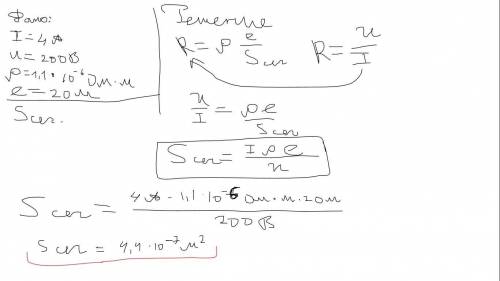 Дано:
I = 4А
u = 200В
ρ = 1,1 · 10⁻⁶ Ом·м
e = 20м
Sсеч.
Решение
R = ρ e/Sсеч
R = u/I
u/I = ρe/Sсеч
Sсеч = Iρe/u
Sсеч = 4А · 1,1·10⁻⁶ Ом·м·20м/200В
Sсеч = 4,4·10⁻⁷ м²